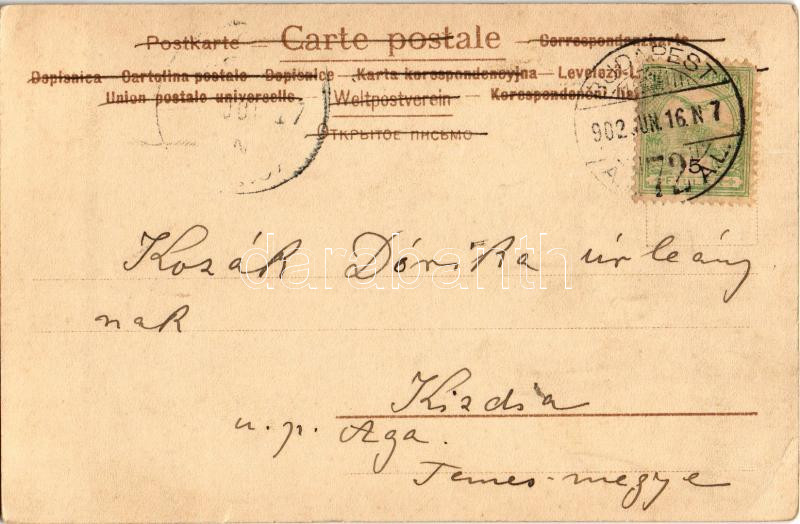 Postkarte — Carte postale — Correspondenzkarte
Dopisnica — Cartolina postale — Dopisnice — Karta korespondencyjna — Levelező-L
Union postale universelle. — Weltpostverein — Korespondenční
Открытое письмо
BUDAPEST
902 JUN. 16. N 7
72
5
Kozák Dórika úrleány
nak
Kizdia
u. p. Aga.
Temes-megye
darabanth